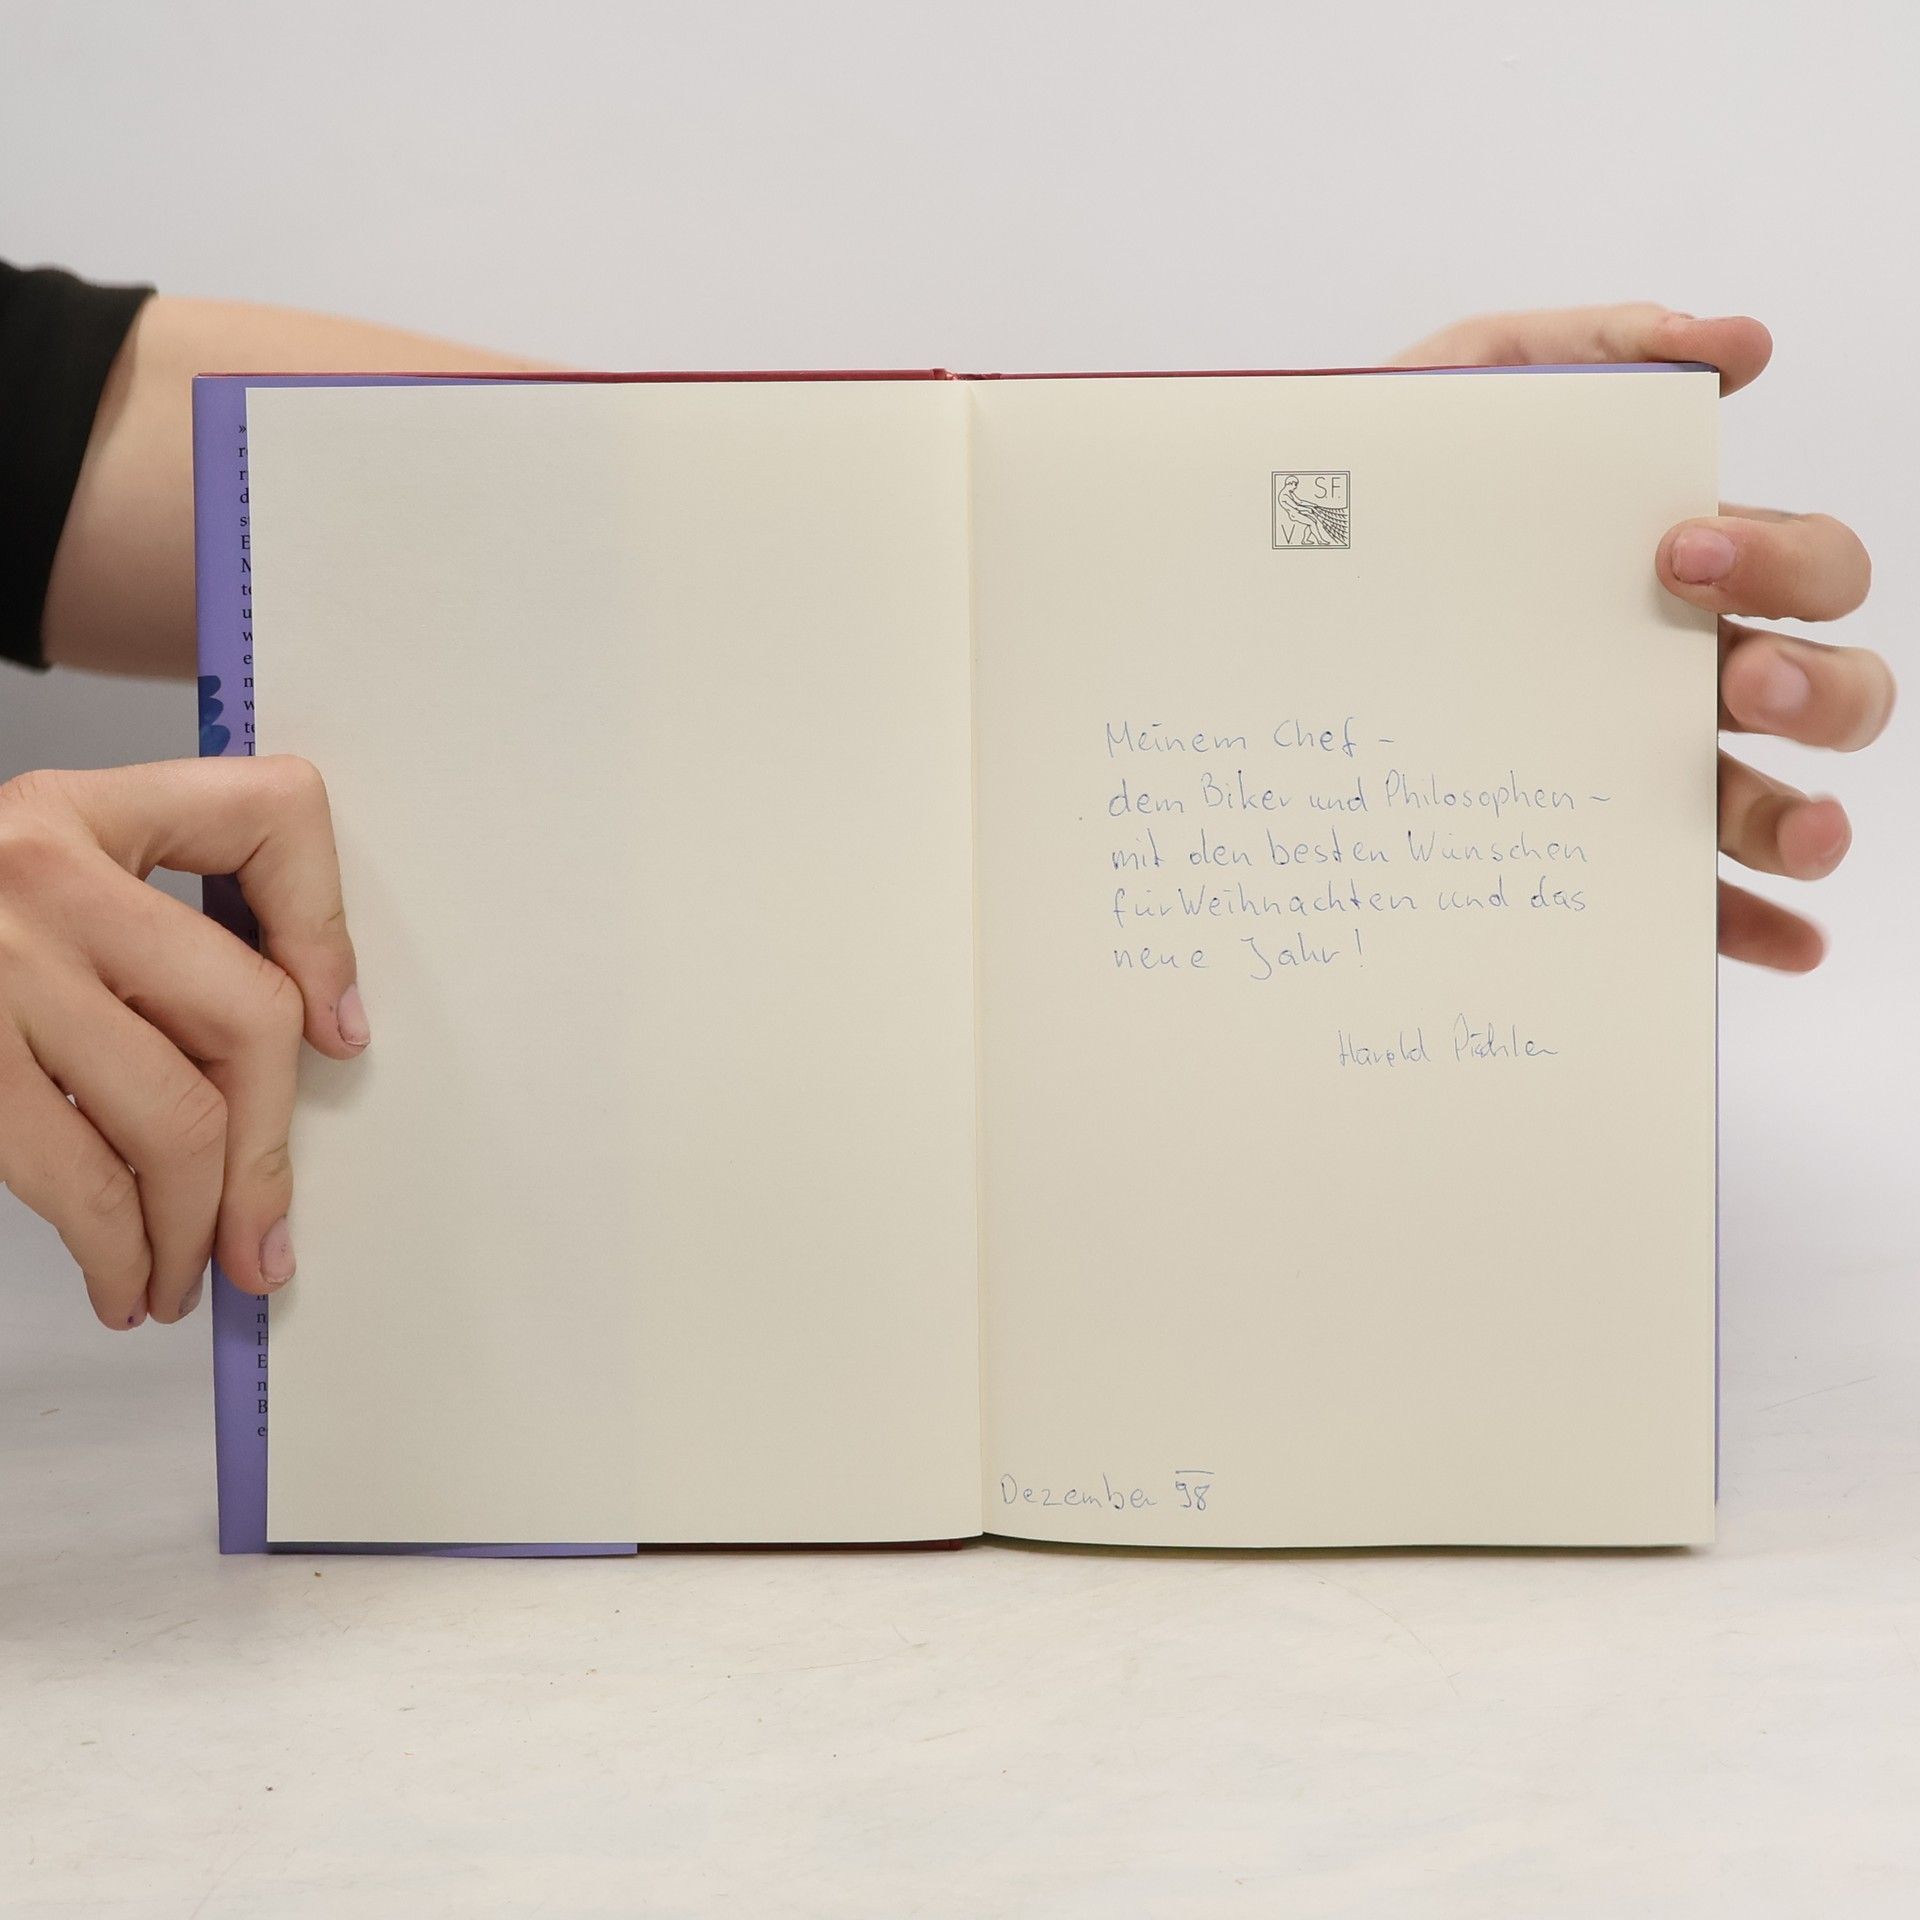 S.F.
V
Meinem Chef -
dem Biker und Philosophen -
mit den besten Wünschen
für Weihnachten und das
neue Jahr!
Harald
Dezember 98